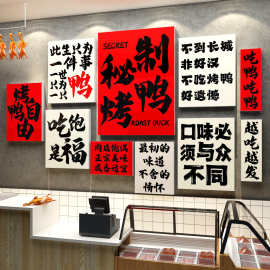 此生只为
一件事
一世为
一只鸭
烧鸭
自由
吃饱
是福
SECRET
秘制
烤鸭
ROAST DUCK
最初的
味道
不舍的
情怀
不到长城
非好汉
不吃烤鸭
好遗憾
口味必
须与众
不同
吃鸭吃鸭
越吃越发